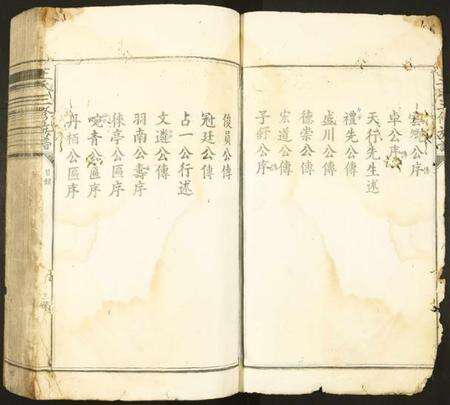 公序
卓公序
天行先生述
禮先公傳
盛川公傳
德崇公傳
宏道公傳
子舒公序
俊員公傳
冠廷公傳
占一公行述
文遴公傳
羽南公壽序
徠亭公匾序
青公匾序
丹桓公匾序
目錄